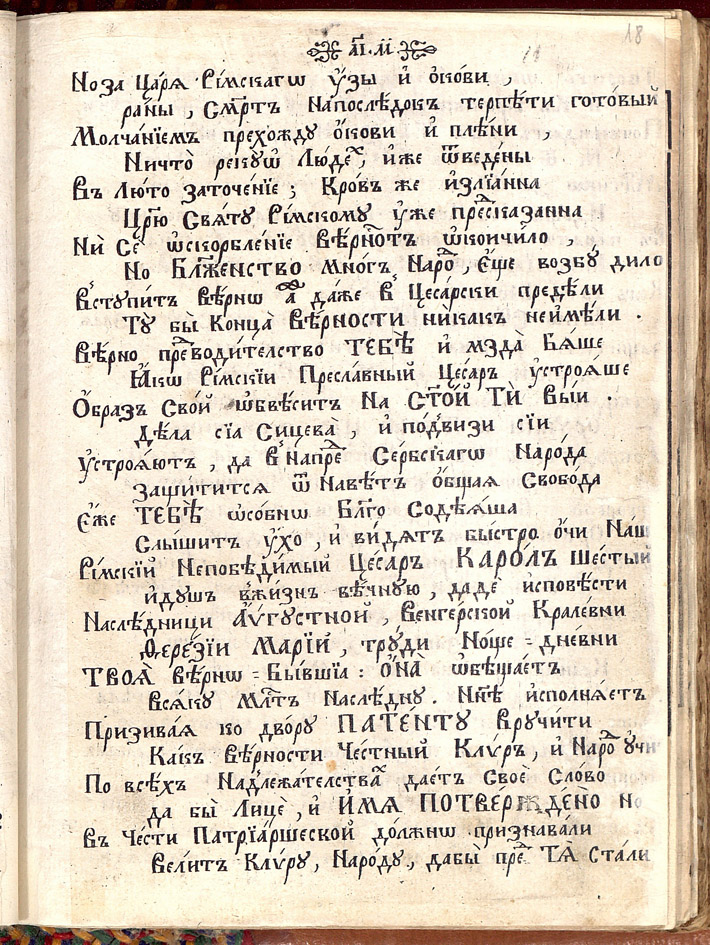 18
11
а҃і. м҃і
Но за Царѧ Рі́мскагѡ ѹ҆́зы и҆ ѻ҆кови ,
ра́ны , См҃ртъ Напослѣ́докъ терпѣ́ти гото́вый
Молча́нїемъ прехожду ѻ҆́кови и҆ плѣ́ни ,
Ничто̀ рекꙋѡ҆ Люде́х , и҆́же ѿведе́ны
Въ Лю́то заточе́нїе ; Кро́въ же и҆злїа́нна
Цр҃ю Свѧ́тꙋ Рі́мскомꙋ ѹ҆́же пре́дсказанна
Ни̇̀ Се̏ ѡ҆скорбле́нїе Вѣ́рностъ ѡ҆кончи́ло ,
Но Бл҃же́нство мно́гъ Наро́д , Є҆́ще возбꙋ́дило
Встꙋпи́тъ Вѣ́рнѡ да́же в Цеса́рски предѣ́ли
Тꙋ̀ бы̀ Конца̀ Вѣ́рности ни́какъ неи҆мѣ́ли .
Вѣ́рно пре́дводи́телство ТЕБѢ̀ и҆ мзда̀ Бѧ́ше
Ꙗ҆́кѡ Рі́мскїи Пресла́вный Це́саръ ѹ҆строѧ́ше
Ѻ҆́бразъ Сво́й ѡ҆бвѣ́ситъ На Ст҃о́й Ти̇̀ Вы́и .
Дѣ́ла сїа Сицева̀ , и҆ по́двизи сїи
ѹ҆строѧ́ютъ , да в напре́д Се́рбскагѡ Наро́да
Защи́титсѧ ѿ Навѣ́тъ Ѻ҆́бщаѧ Свобо́да
Є҆́же ТЕБѢ̀ ѡ҆со́бнѡ Бл҃го Содѣѧ́ша
Слы́шитъ ѹ҆́хо , и҆ ви́дѧтъ бы́стро ѻ҆́чи На́ш
Рі́мскїй Непобѣди́мый Це́саръ КА́РОЛЪ Шесты́й
и҆́дꙋшъ вжи́знь вѣ́чнꙋю , даде̏ и҆сповѣ́сти
Наслѣ́дници А҆́ѵгꙋстной , Венге́рской Крале́вни
Ѳере́зїи МАРІ́И , трꙋ́ди Но́ще = дневни
ТВОѦ̀ Вѣ́рнѡ = Бы́вшїа : Ѻ҆НА̀ ѡ҆бѣща́етъ
Всѧ́кꙋ Мл҃тъ Наслѣ́днꙋ . Нн҃ѣ и҆сполнѧ́етъ
Призива́ѧ ко дво́рꙋ ПАТЕ́НТꙊ Врꙋчи́ти
Ка́къ Вѣ́рности Че́стный Клѵ́ръ , и҆ Наро́д ѹ҆чи
По всѣ́хъ На́длежа́телствах дае́тъ Своѐ Сло́во
да бы̀ Лицѐ , и҆ И҆́МѦ ПОТВЕРЖДЕ́НО Но
Въ Че́сти Патрїа́ршеской до́лжнѡ признава́ли
Вели́тъ Клѵ́рꙋ , Наро́дꙋ , дабы̀ пре́д ТѦ̀ Ста́ли